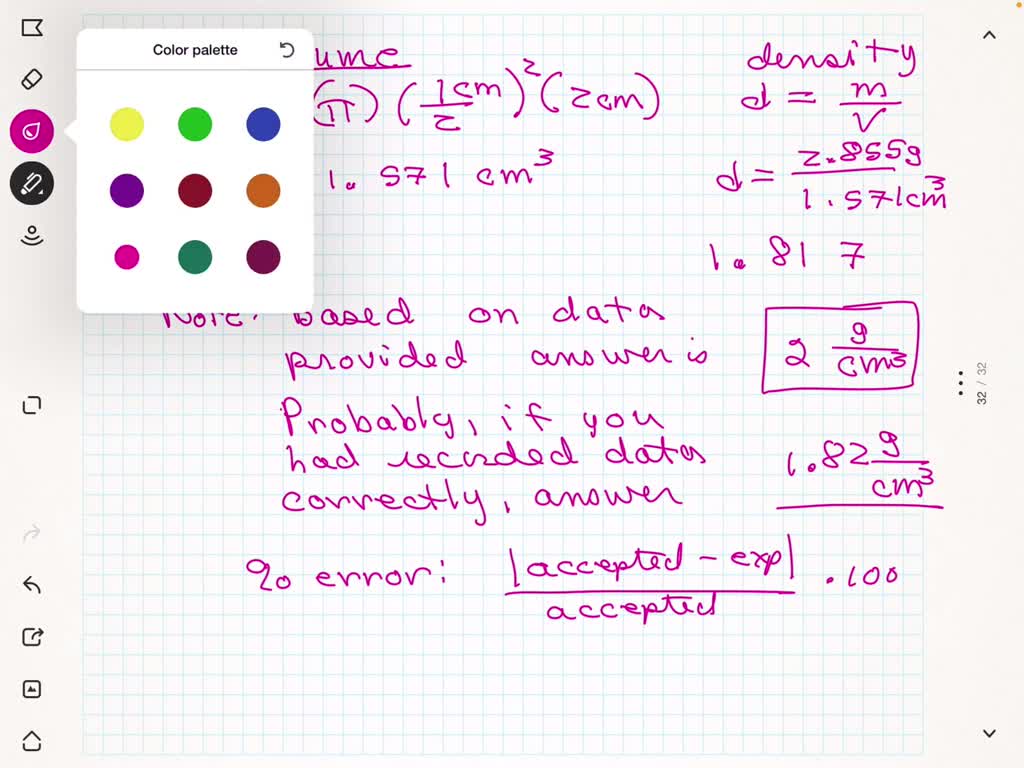 Color palette
ume
(π) (1cm/2)² (2cm)
1.571 cm³
density
d = m/V
d = 2.855g/1.571cm³
1.817
Note: based on data
provided answer is
2 g/cm³
Probably, if you
had recorded data
correctly, answer
1.82 g/cm³
% error: |accepted - exp|/accepted .100
32 / 32